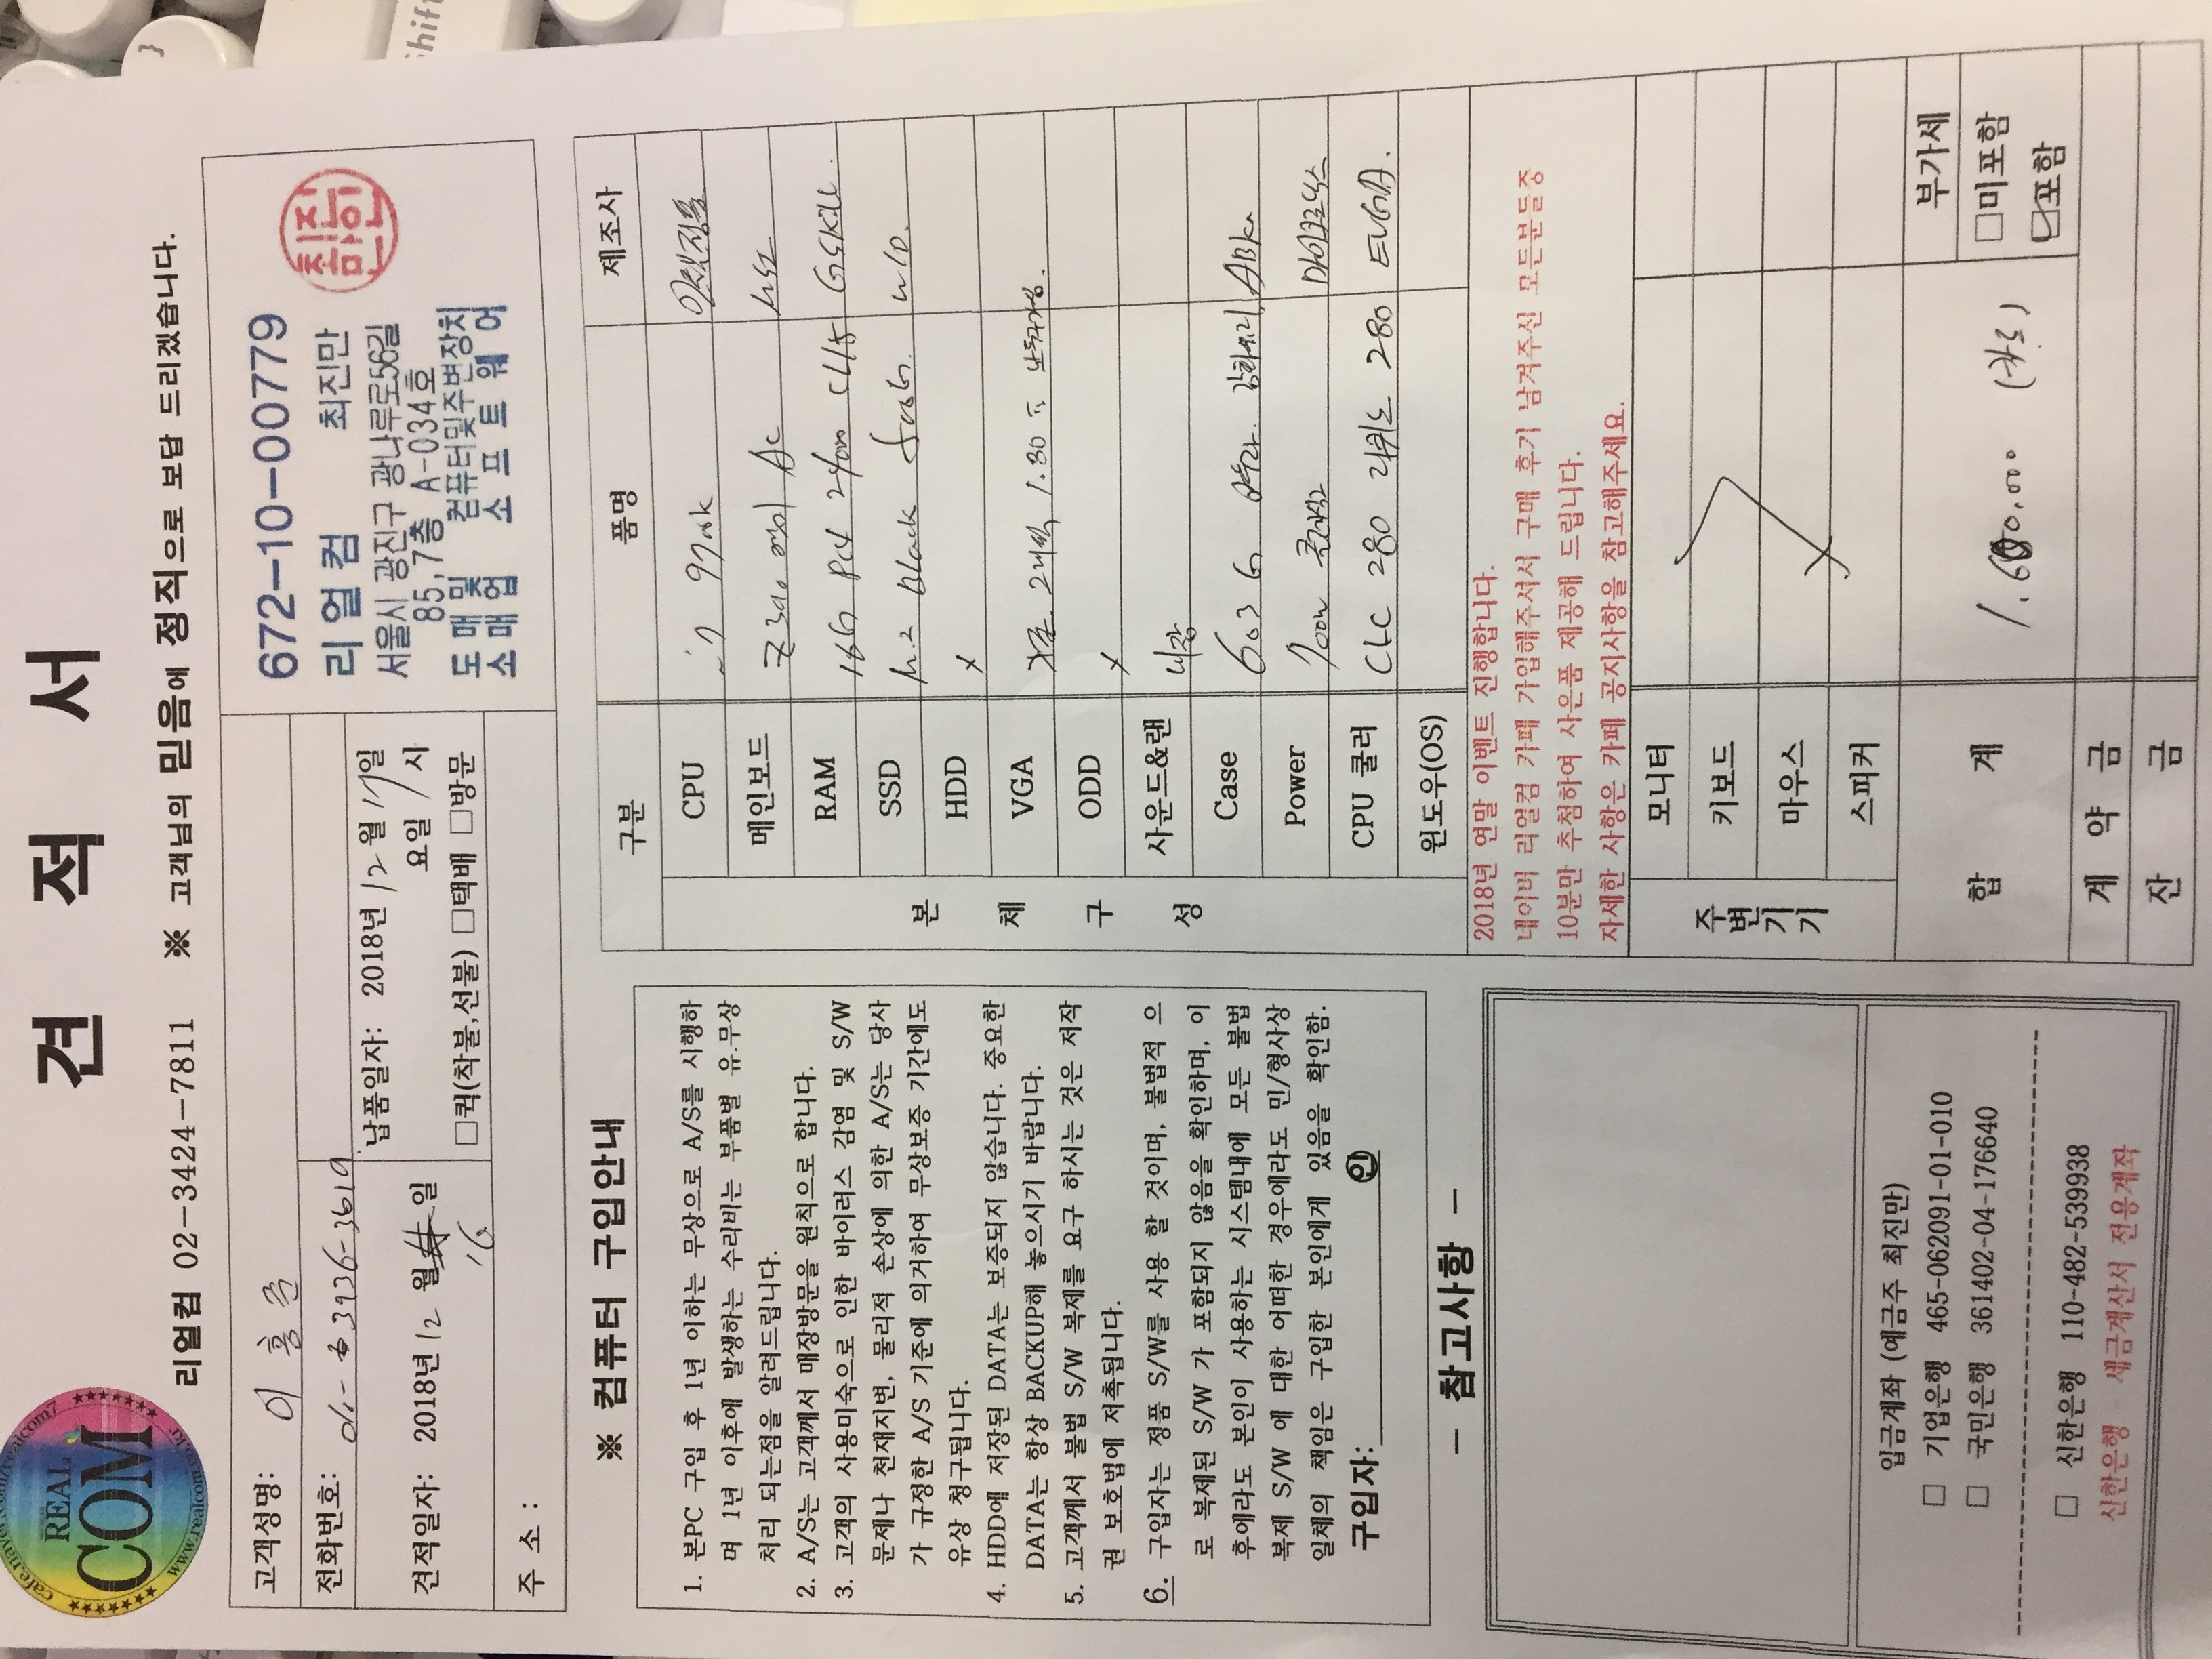 견 적 서
리얼컴 02-3424-7811 ※ 고객님의 믿음에 정직으로 보답 드리겠습니다.
cafe.naver.com/realcom7
REAL
COM
www.realcom.co.kr
고객성명: 이
전화번호:
견적일자: 2018년 12 월 16 일
납품일자: 2018년 12 월 17 일
요일 1 시
□퀵(착불,선불) □택배 □방문
주 소 :
672-10-00779
리얼컴 최진만
서울시 광진구 광나루로56길
85,7층 A-034호
도매 및 컴퓨터및주변장치
소매업 소프트웨어
최진만인
※ 컴퓨터 구입안내
1. 본PC 구입 후 1년 이하는 무상으로 A/S를 시행하
며 1년 이후에 발생하는 수리비는 부품별 유.무상
처리 되는점을 알려드립니다.
2. A/S는 고객께서 매장방문을 원칙으로 합니다.
3. 고객의 사용미숙으로 인한 바이러스 감염 및 S/W
문제나 천재지변, 물리적 손상에 의한 A/S는 당사
가 규정한 A/S 기준에 의거하여 무상보증 기간에도
유상 청구됩니다.
4. HDD에 저장된 DATA는 보증되지 않습니다. 중요한
DATA는 항상 BACKUP해 놓으시기 바랍니다.
5. 고객께서 불법 S/W 복제를 요구 하시는 것은 저작
권 보호법에 저촉됩니다.
6. 구입자는 정품 S/W를 사용 할 것이며, 불법적 으
로 복제된 S/W 가 포함되지 않음을 확인하며, 이
후에라도 본인이 사용하는 시스템내에 모든 불법
복제 S/W 에 대한 어떠한 경우에라도 민/형사상
일체의 책임은 구입한 본인에게 있음을 확인함.
구입자: 인
- 참고사항 -
입금계좌 (예금주 최진만)
□ 기업은행 465-062091-01-010
□ 국민은행 361402-04-176640
□ 신한은행 110-482-539938
신한은행 - 세금계산서 전용계좌
구분 품명 제조사
본 체 구 성
CPU i7 9700k 인텔정품
메인보드 Z390
RAM 16G PC4 24000 CL15 GSKILL
SSD M.2 black 500G. WD.
HDD x
VGA
ODD x
사운드&랜 내장
Case 603 G 강화유리 ABKO
Power 700W 클래식 마이크로닉스
CPU 쿨러 CLC 280 리퀴드 280 EVGA.
윈도우(OS)
2018년 연말 이벤트 진행합니다.
네이버 리얼컴 카페 가입해주셔서 구매 후기 남겨주신 모든분들중
10분만 추첨하여 사은품 제공해 드립니다.
자세한 사항은 카페 공지사항을 참고해주세요.
주변기기
모니터
키보드
마우스
스피커
합 계 (카드)
부가세
□미포함
☑포함
계 약 금
잔 금
Shift
}